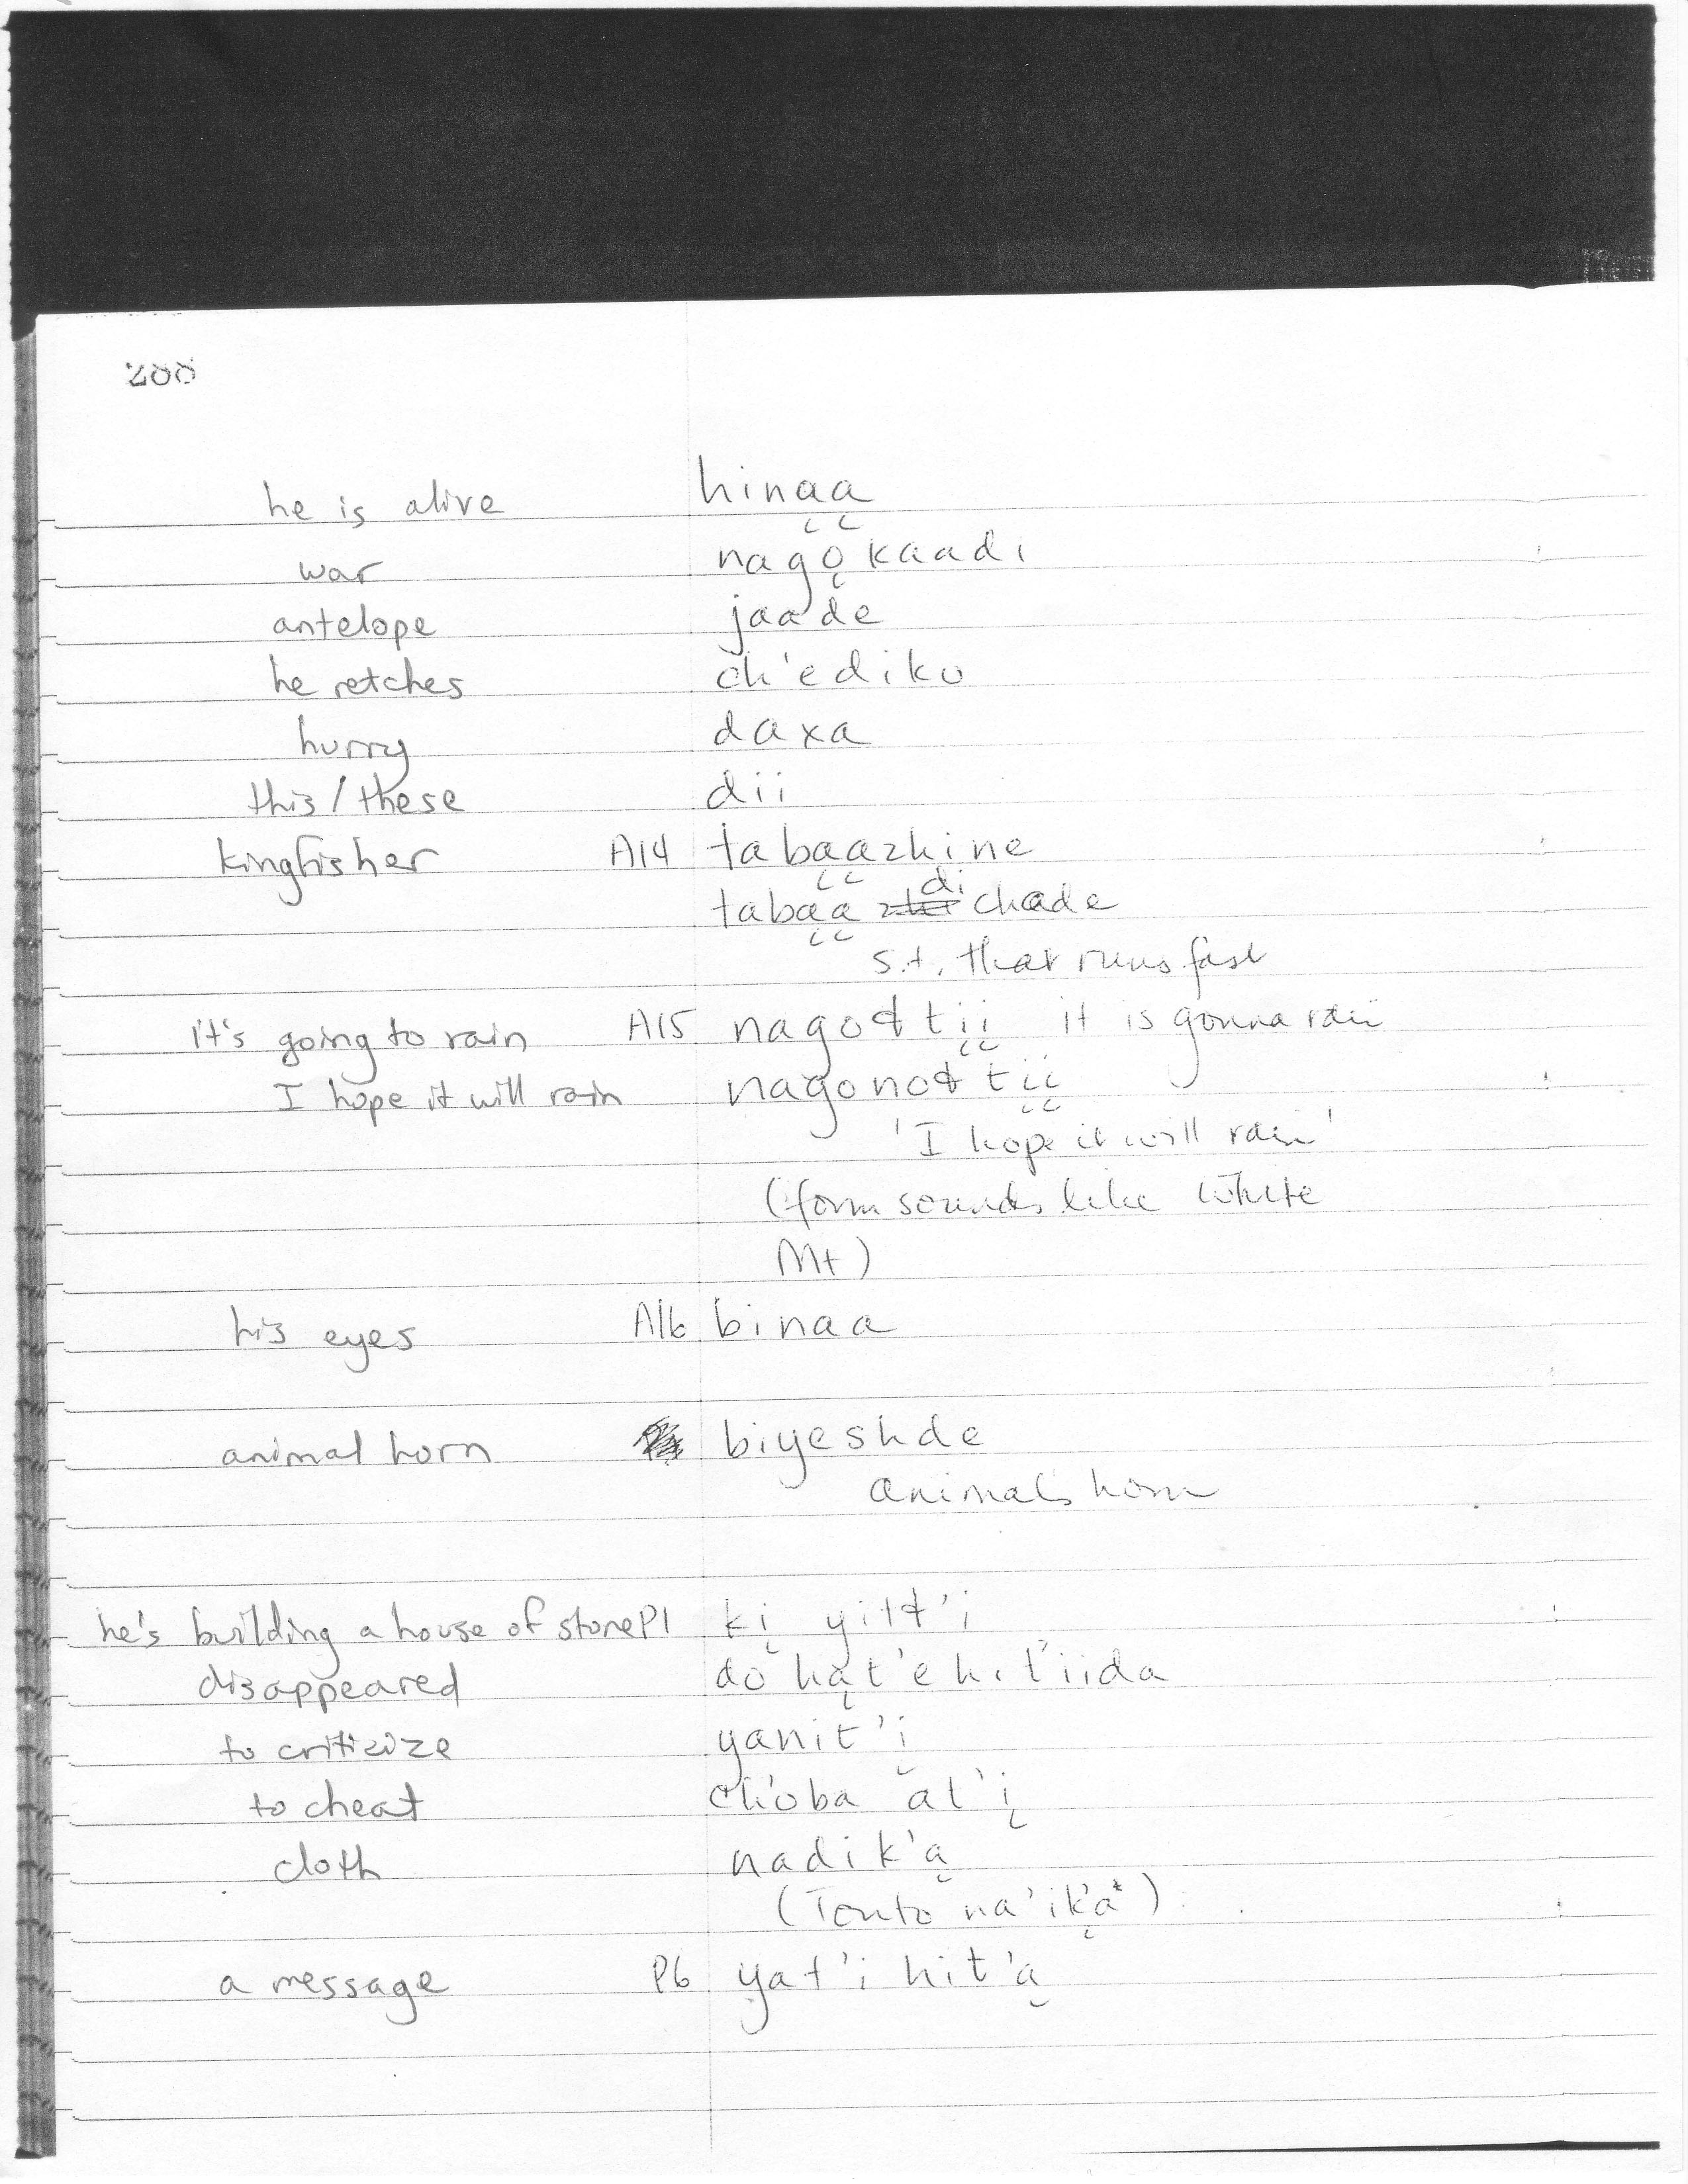 288
he is alive hiną̨ą̨
war nagǫkaadi
antelope jaade
he retches ch'ediko
hurry daxa
this/these dii
kingfisher A14 tabąązhine
tabąą di chade
s.t. that runs fast
it's going to rain A15 nagołtįį it is gonna rain
I hope it will rain nagonołtįį
'I hope it will rain'
(form sounds like White
Mt)
his eyes A16 binaa
animal horn biyeshde
animal's horn
he's building a house of stone P1 kį yiłt'i
disappeared do hąt'e hit'iida
to criticize yanit'į
to cheat ch'oba 'at'į
cloth nadik'ą
(Tonto na'ik'ą*)
a message P6 yat'i hit'ą